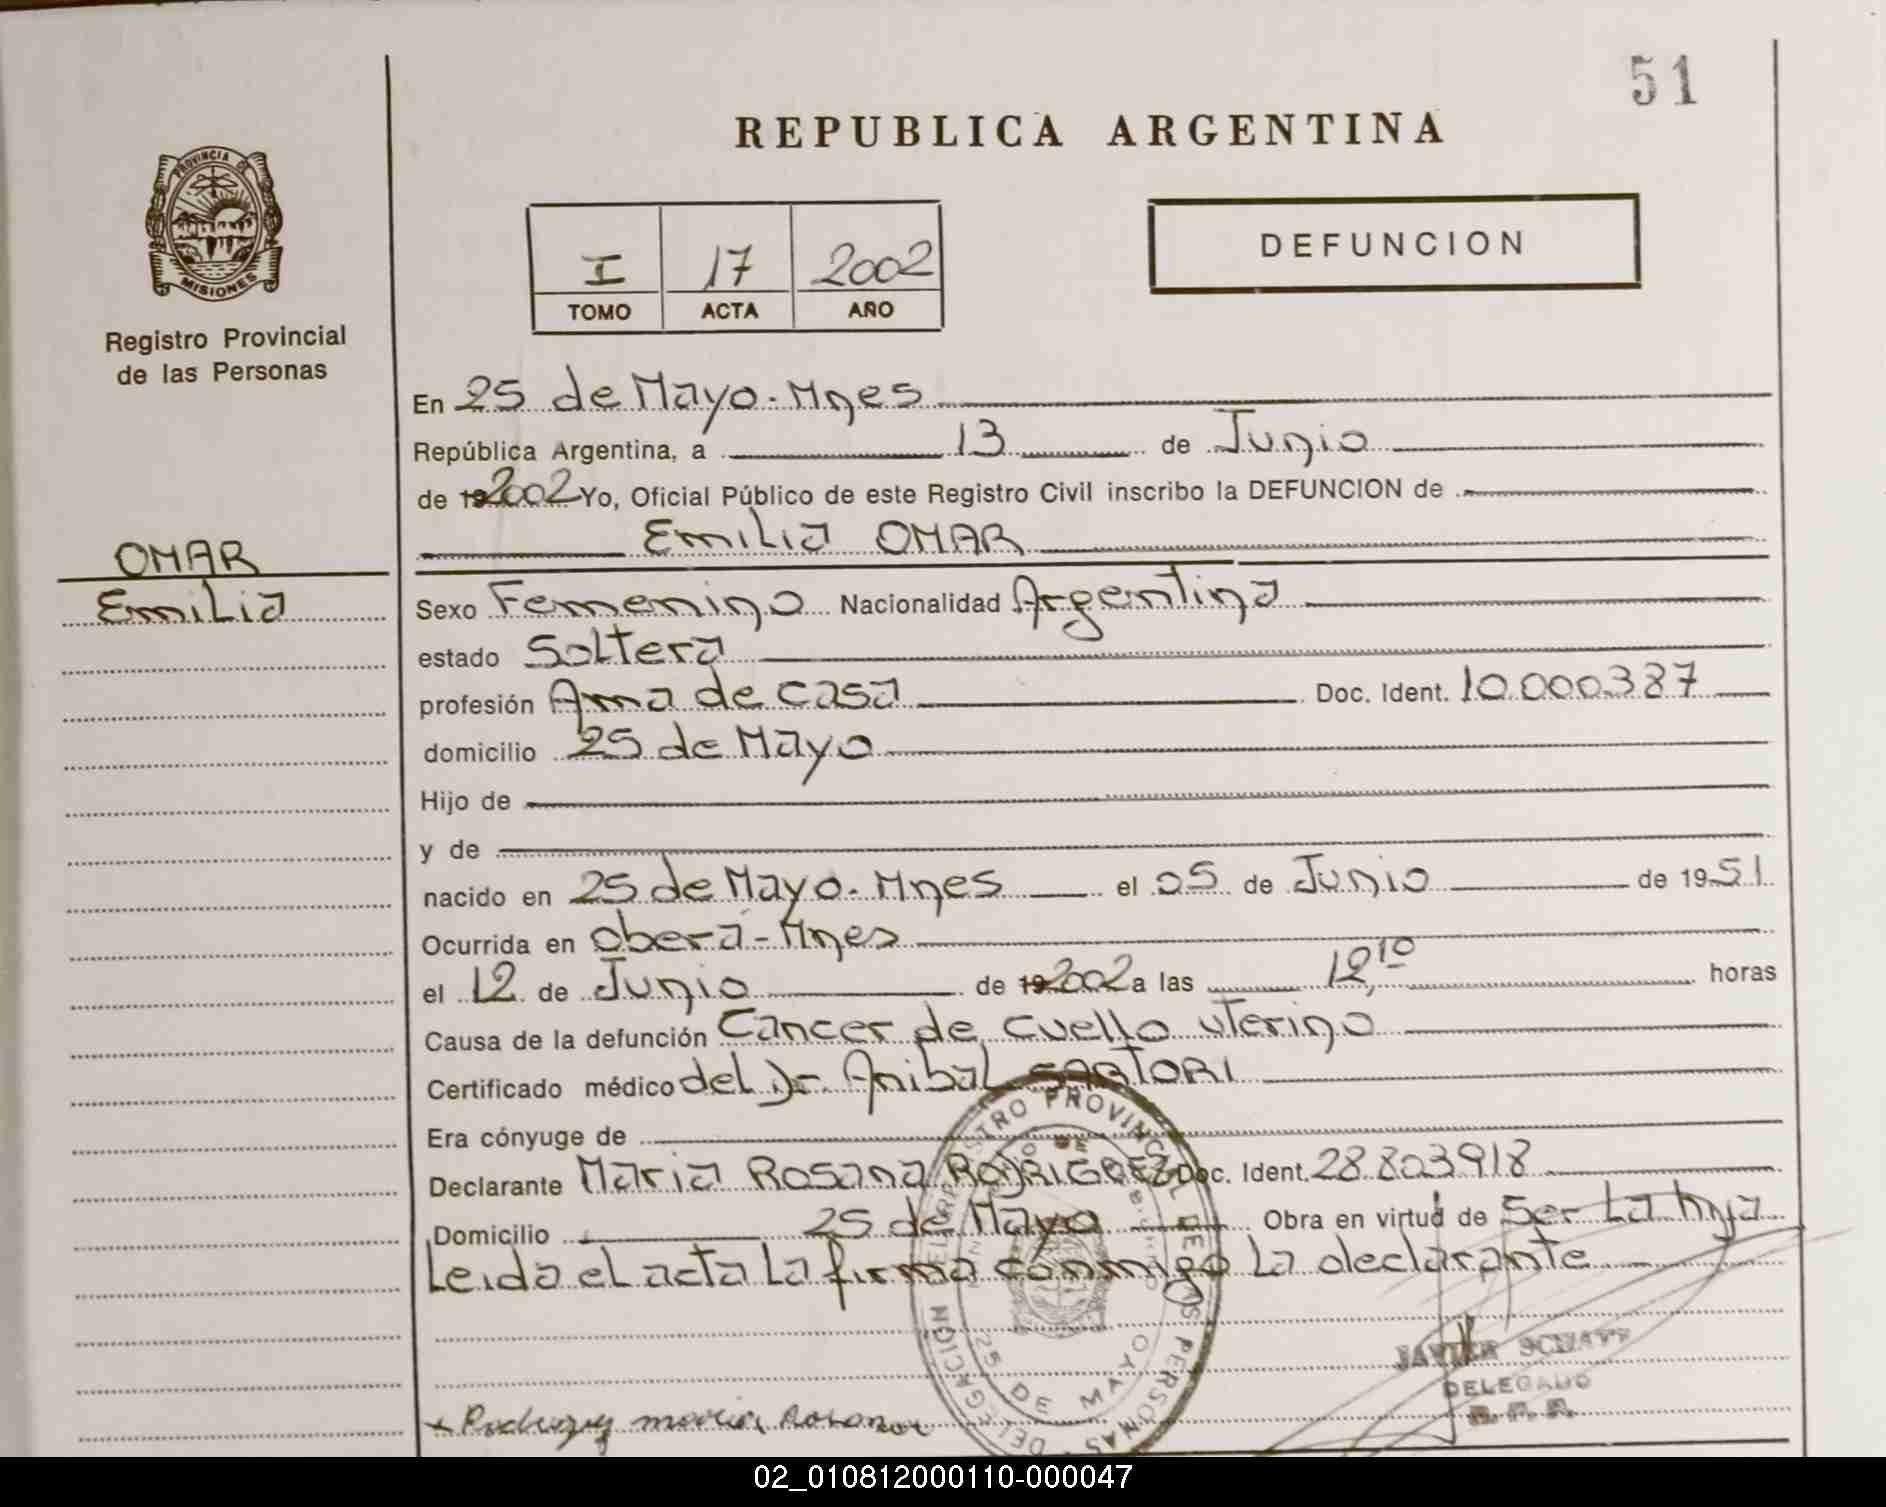 51
REPUBLICA ARGENTINA
PROVINCIA DE
MISIONES
Registro Provincial
de las Personas
I 17 2002
TOMO ACTA AÑO
DEFUNCION
En 25 de Mayo - Mnes
República Argentina, a 13 de Junio
de 192002 Yo, Oficial Público de este Registro Civil inscribo la DEFUNCION de
Emilia OMAR
OMAR
Emilia
Sexo Femenino Nacionalidad Argentina
estado Soltera
profesión Ama de casa Doc. Ident. 10.000.387
domicilio 25 de Mayo
Hijo de
y de
nacido en 25 de Mayo - Mnes el 05 de Junio de 1951
Ocurrida en Oberá - Mnes
el 12 de Junio de 192002 a las 12,10 horas
Causa de la defunción Cancer de cuello uterino
Certificado médico del Dr Anibal SARTORI
Era cónyuge de
Declarante Maria Rosana RODRIGUEZ Doc. Ident. 28.803.918
Domicilio 25 de Mayo Obra en virtud de Ser La hija
Leida el acta La firma conmigo La declarante
REGISTRO PROVINCIAL DE LAS PERSONAS
DELEGACIÓN
25 DE MAYO
JAVIER
DELEGADO
x Rodriguez maria Rosana
02_010812000110-000047